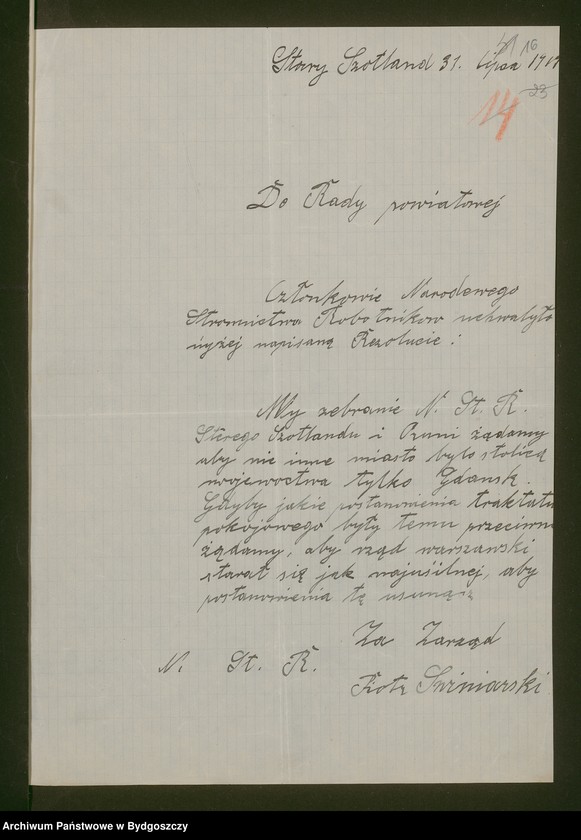 16
Stary Szotland 31. lipca 19
14
23
Do Rady powiatowej
Członkowie Narodowego
Stronnictwa Robotników uchwalyło
niżej napisaną Rezolucie :
My zebranie N. St. R.
Starego Szotlandu i Oruni żądamy
aby nie inne miasto było stolicą
wojewoctwa tylko Gdańsk.
Gdyby jakie postanowienia traktatu
pokojowego były temu przeciwne
żądamy, aby rząd warszawski
starał się jak najusilnej, aby
postanowienia tę usunąść
Za Zarząd
N. St. R.
Piotr
Archiwum Państwowe w Bydgoszczy